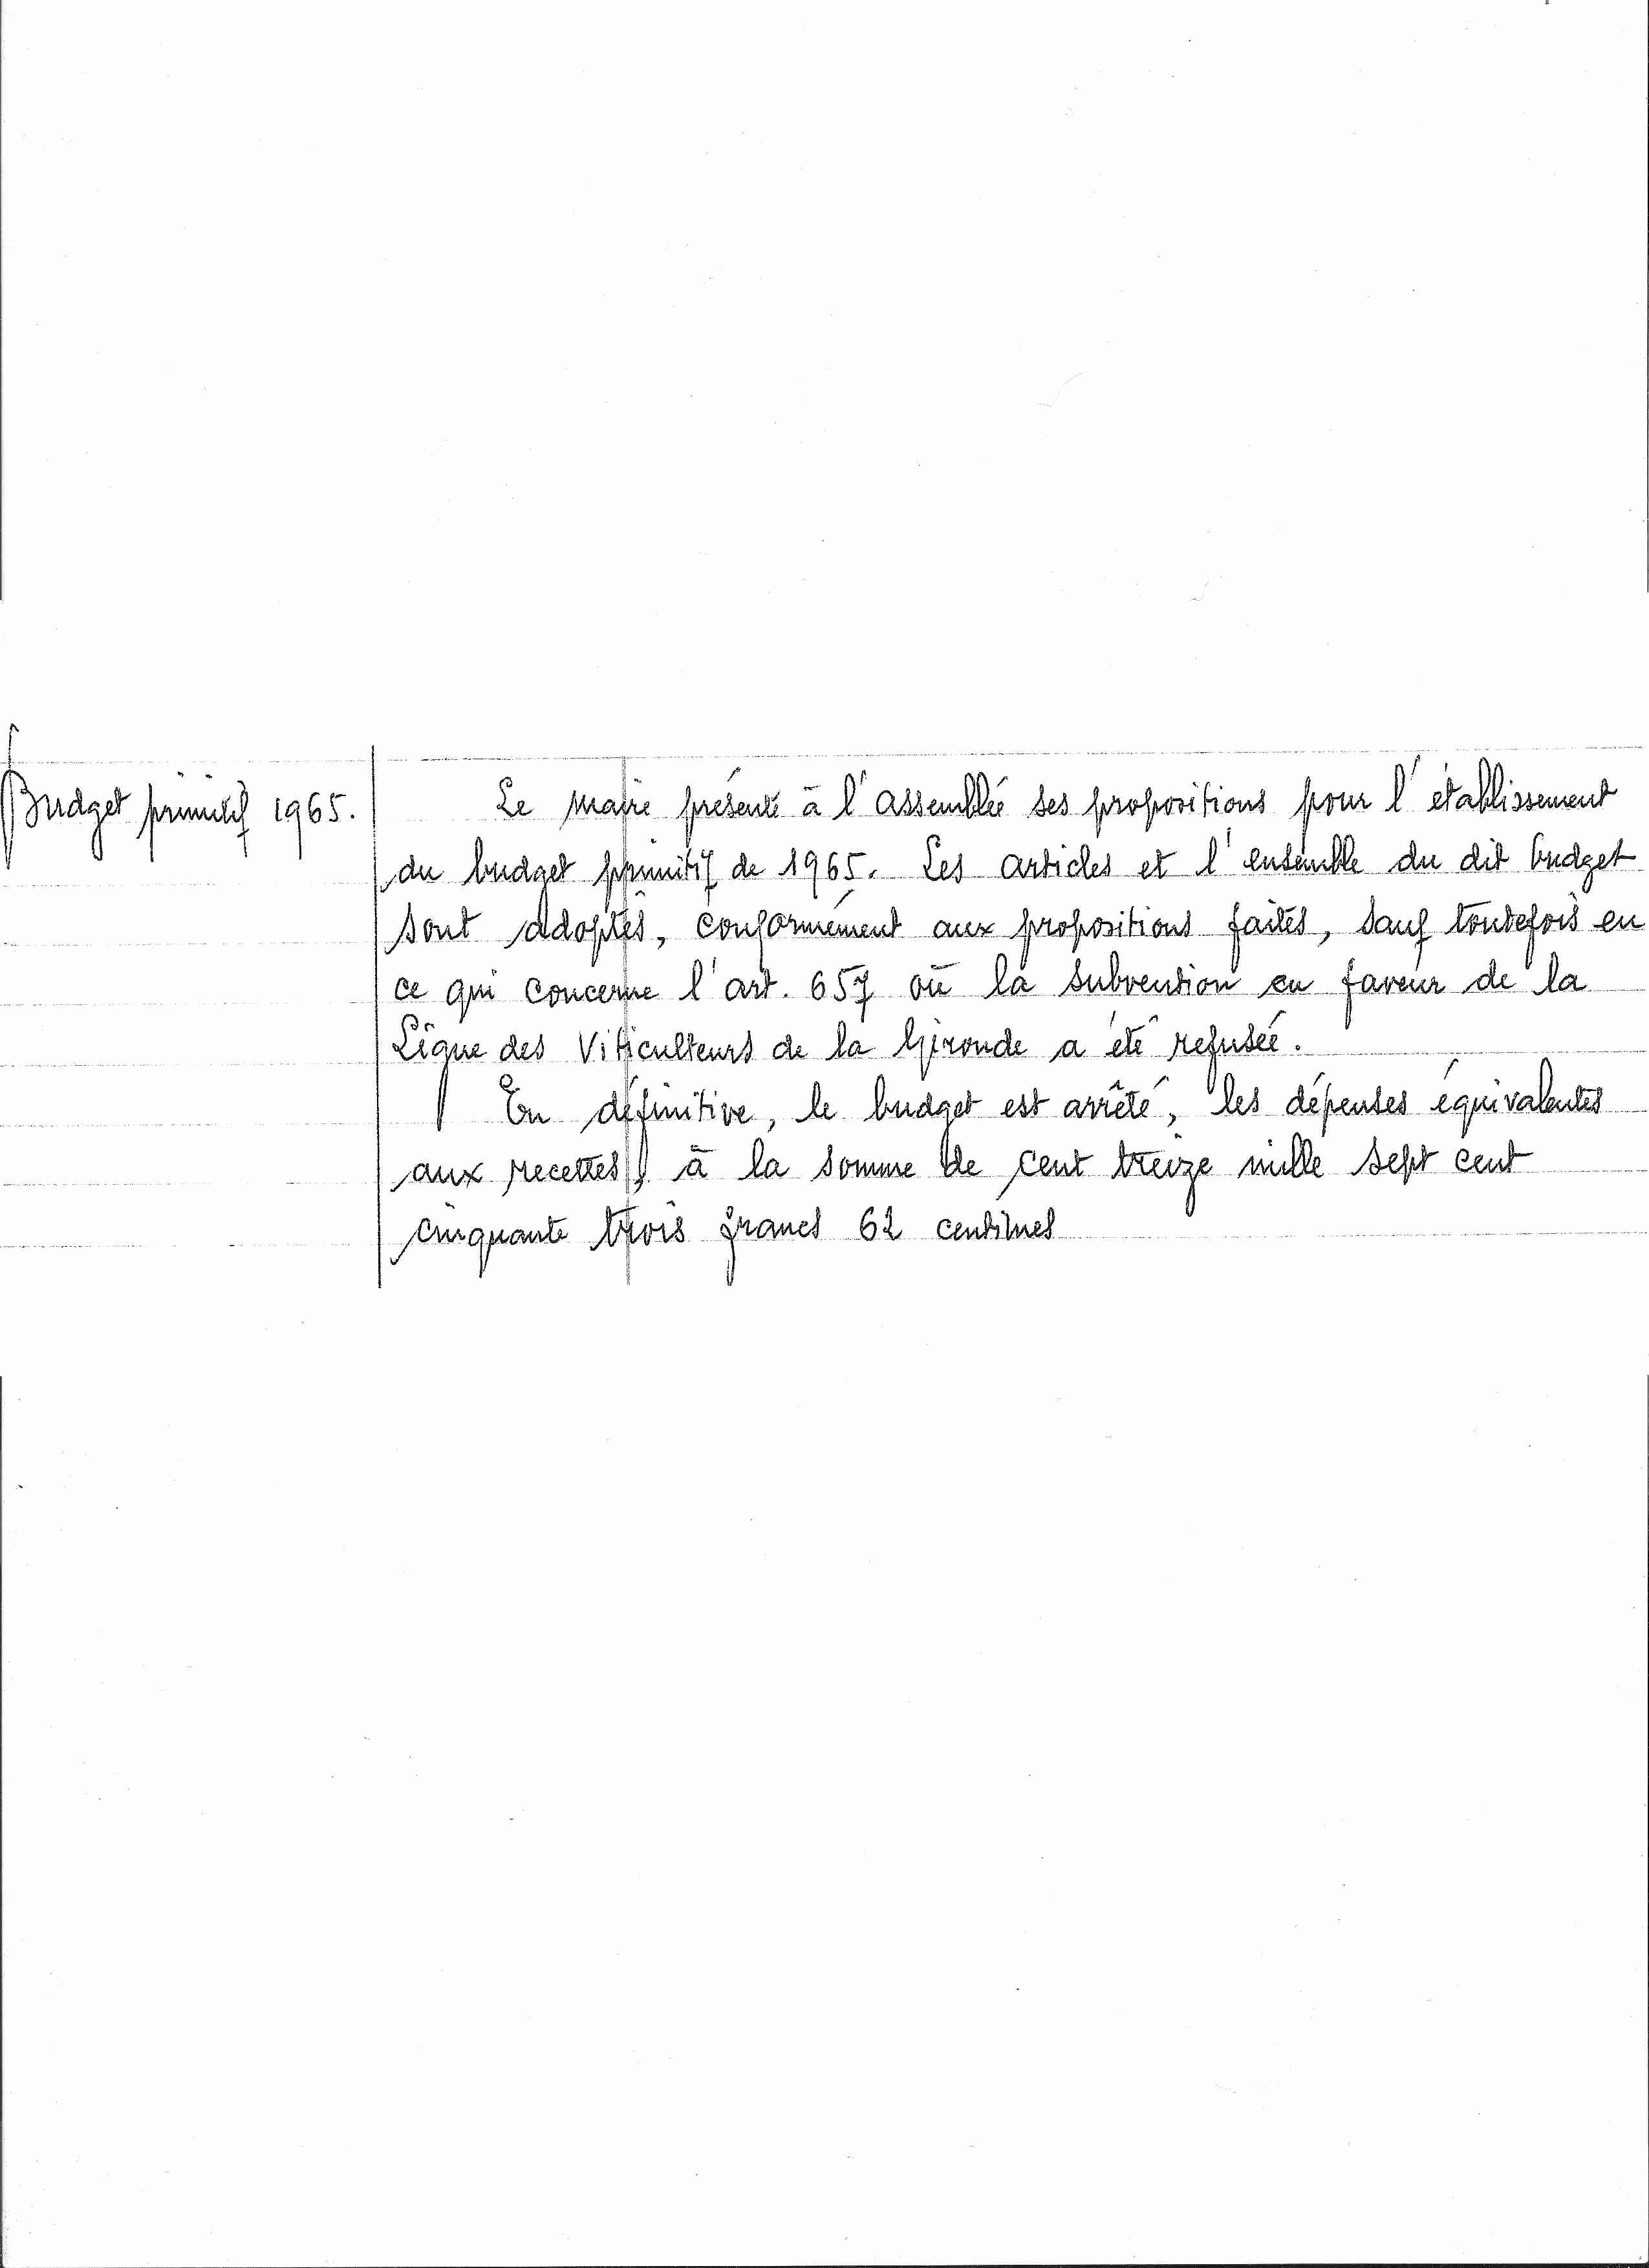 Budget primitif 1965.
Le maire présente à l'assemblée ses propositions pour l'établissement
du budget primitif de 1965. Les articles et l'ensemble du dit budget
sont adoptés, conformément aux propositions faites, sauf toutefois en
ce qui concerne l'art. 657 où la subvention en faveur de la
Ligue des Viticulteurs de la Gironde a été refusée.
En définitive, le budget est arrêté, les dépenses équivalentes
aux recettes, à la somme de cent treize mille sept cent
cinquante trois francs 62 centimes